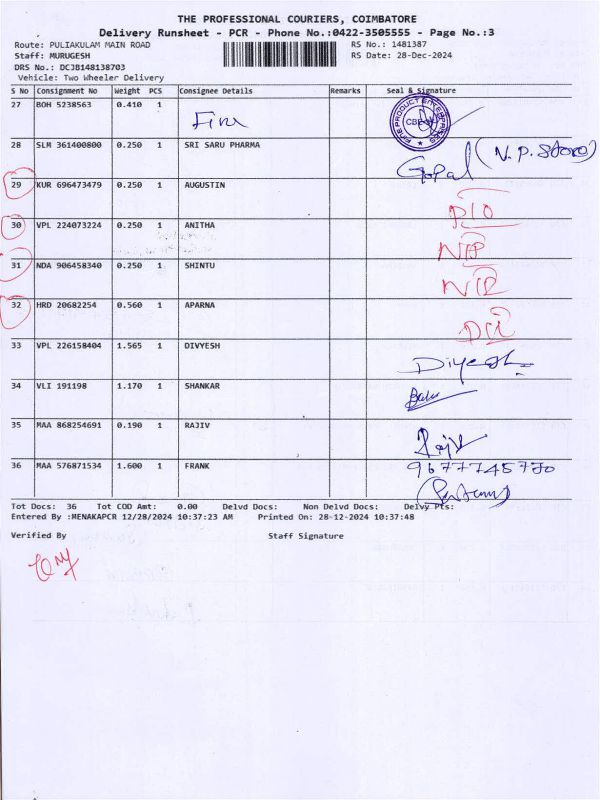 THE PROFESSIONAL COURIERS, COIMBATORE
Delivery Runsheet - PCR - Phone No.:0422-3505555 - Page No.:3
Route: PULIAKULAM MAIN ROAD RS No.: 1481387
Staff: MURUGESH RS Date: 28-Dec-2024
DRS No.: DCJB148138703
Vehicle: Two Wheeler Delivery
S No Consignment No Weight PCS Consignee Details Remarks Seal & Signature
27 BOH 5238563 0.410 1
28 SLM 361400800 0.250 1 SRI SARU PHARMA Gopal (N.P. Store)
29 KUR 696473479 0.250 1 AUGUSTIN
30 VPL 224073224 0.250 1 ANITHA
31 NDA 906458340 0.250 1 SHINTU
32 HRD 20682254 0.560 1 APARNA
33 VPL 226158404 1.565 1 DIVYESH
34 VLI 191198 1.170 1 SHANKAR
35 MAA 868254691 0.190 1 RAJIV Rajiv
36 MAA 576871534 1.600 1 FRANK
Tot Docs: 36 Tot COD Amt: 0.00 Delvd Docs: Non Delvd Docs: Delvy Pts:
Entered By :MENAKAPCR 12/28/2024 10:37:23 AM Printed On: 28-12-2024 10:37:48
Verified By Staff Signature